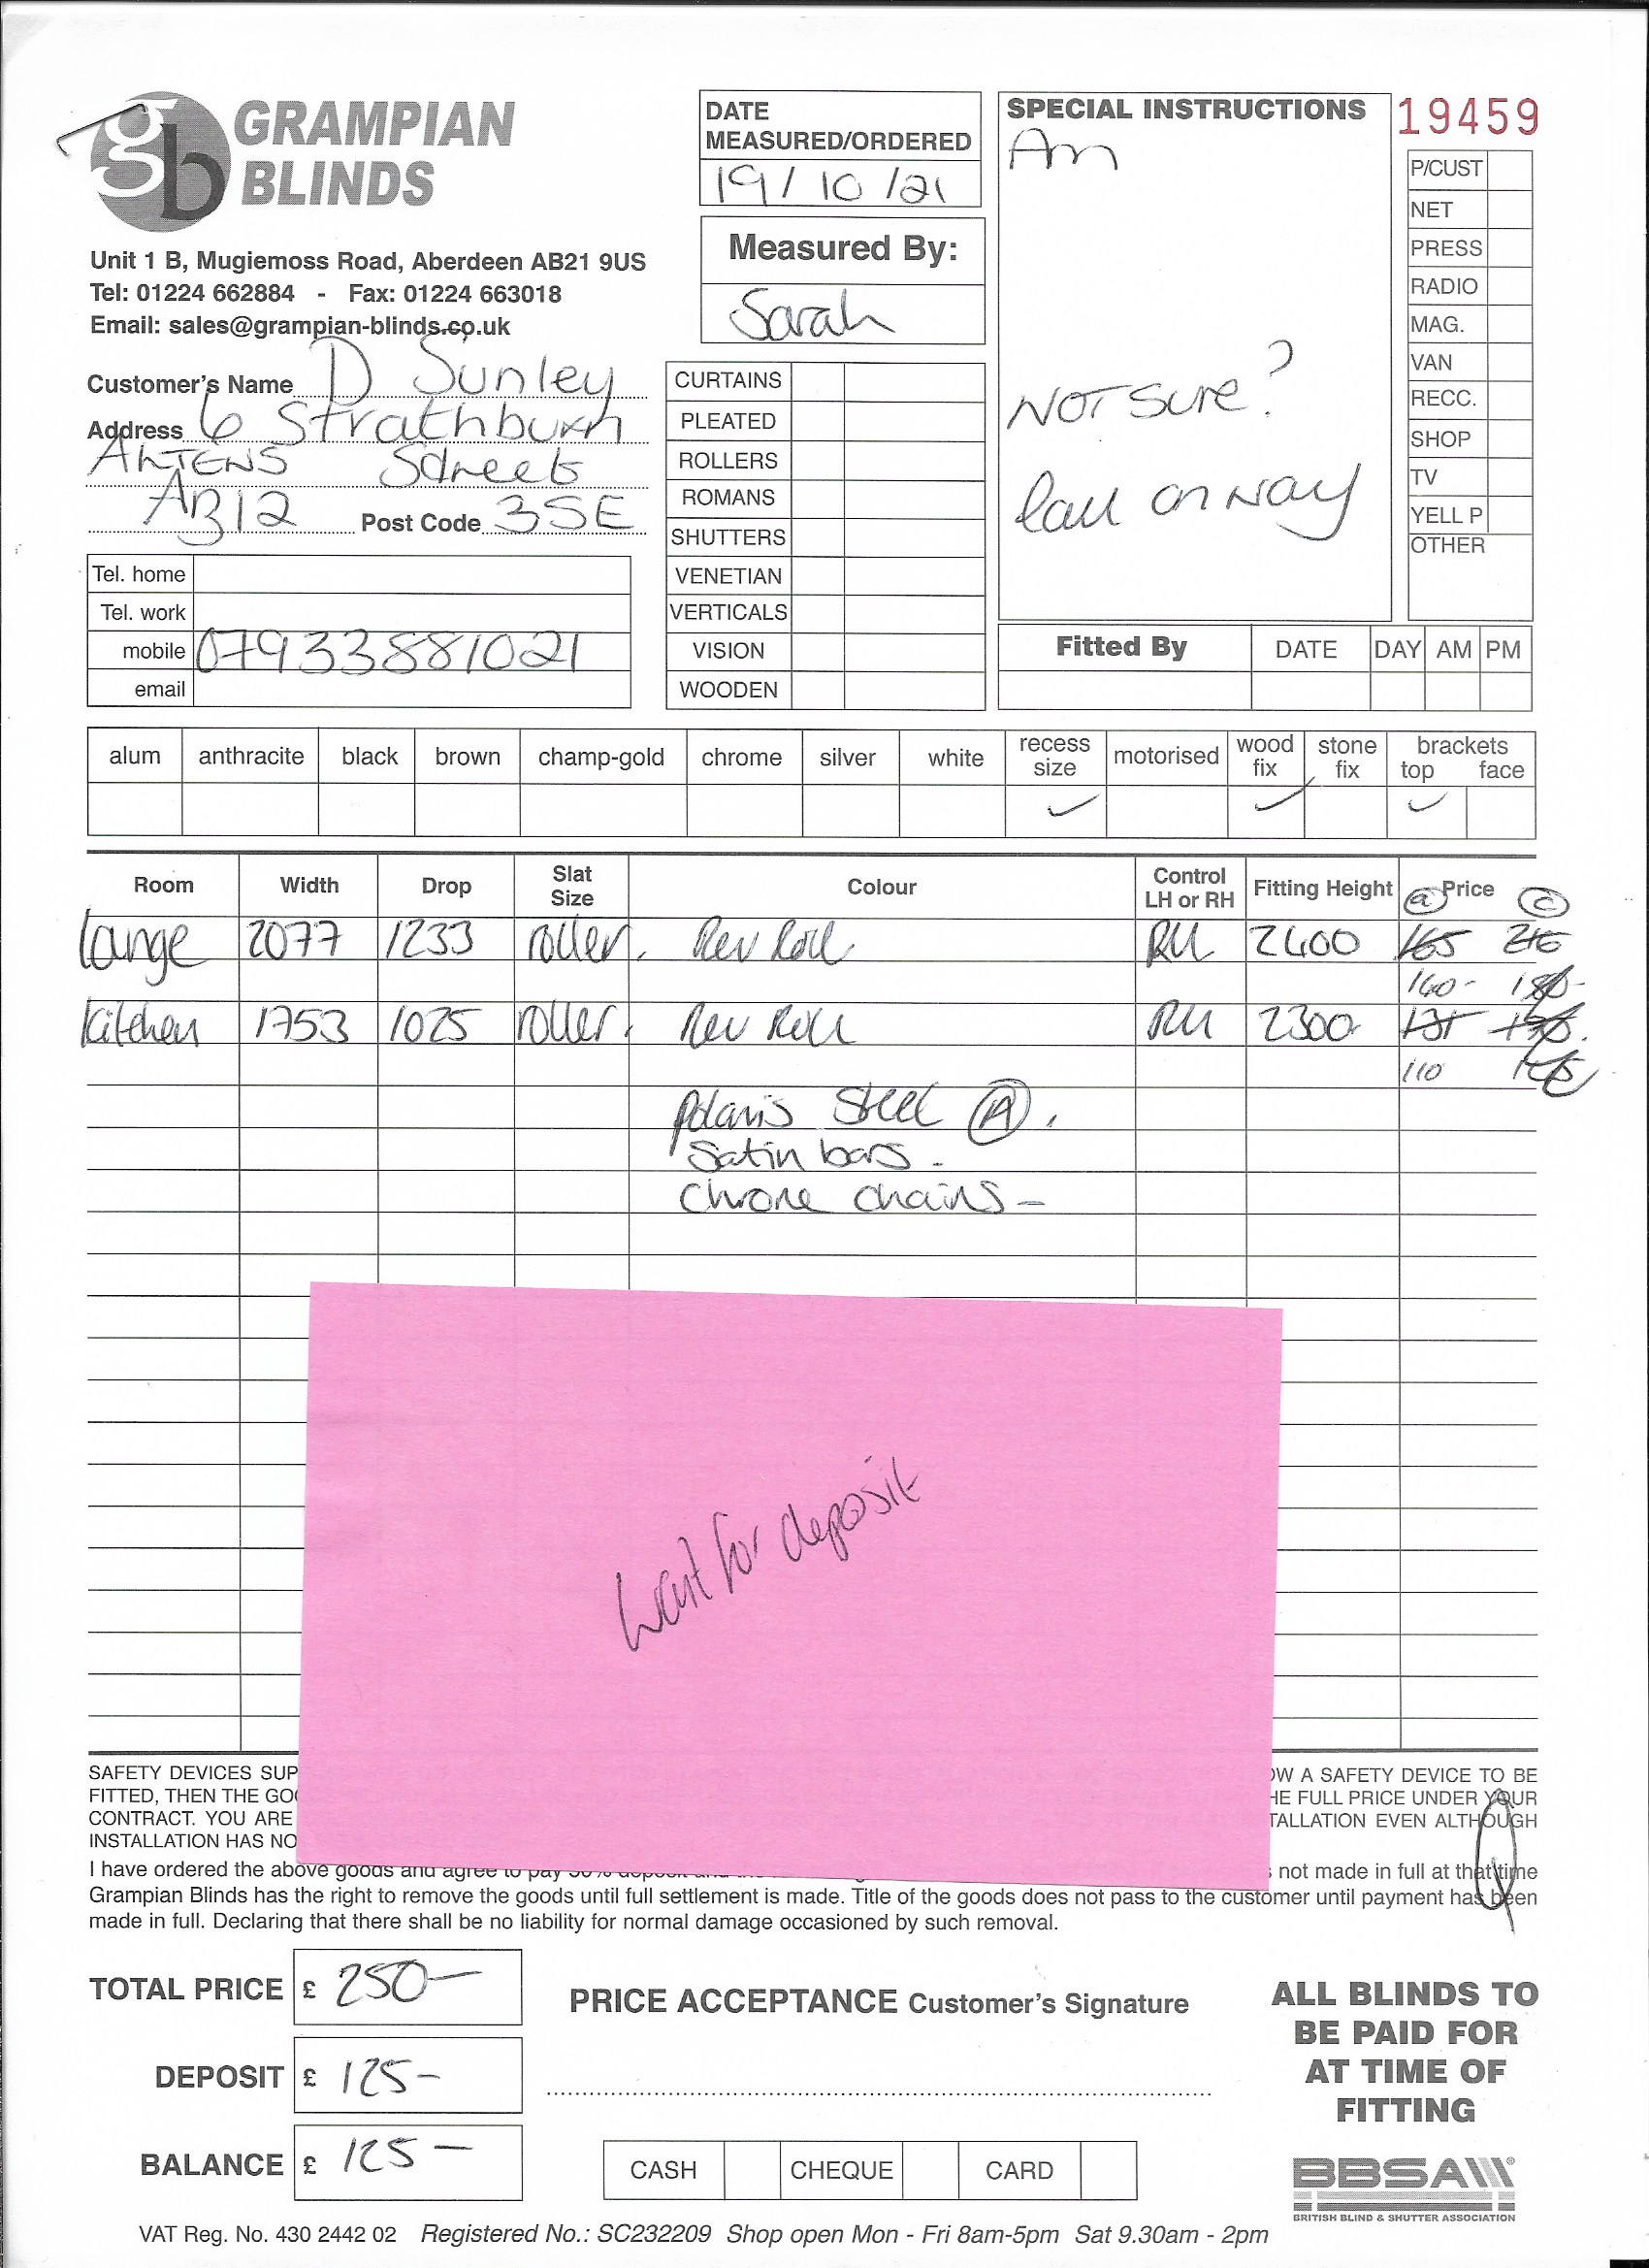 gb GRAMPIAN BLINDS
Unit 1 B, Mugiemoss Road, Aberdeen AB21 9US
Tel: 01224 662884 - Fax: 01224 663018
Email: sales@grampian-blinds.co.uk
Customer's Name D Sunley
Address 6 Strathburn
ALTENS Street
AB12 Post Code 3SE
Tel. home
Tel. work
mobile 07933881021
email
DATE MEASURED/ORDERED
19/10/21
Measured By:
Sarah
CURTAINS
PLEATED
ROLLERS
ROMANS
SHUTTERS
VENETIAN
VERTICALS
VISION
WOODEN
SPECIAL INSTRUCTIONS
Am
NOT SURE?
Call on way
19459
P/CUST
NET
PRESS
RADIO
MAG.
VAN
RECC.
SHOP
TV
YELL P
OTHER
Fitted By DATE DAY AM PM
alum anthracite black brown champ-gold chrome silver white recess size motorised wood fix stone fix brackets top face
✓ ✓ ✓
Room Width Drop Slat Size Colour Control LH or RH Fitting Height Price
a c
Lounge 2077 1233 roller. Rev Roll RH 2400 165
160- 180-
Kitchen 1753 1025 roller. Rev Roll RH 2300 131
110
Polaris Steel A.
Satin bars -
Chrome chains -
Wait for deposit
SAFETY DEVICES SUP OW A SAFETY DEVICE TO BE
FITTED, THEN THE GO HE FULL PRICE UNDER YOUR
CONTRACT. YOU ARE TALLATION EVEN ALTHOUGH
INSTALLATION HAS NO
I have ordered the above goods and agree to pay 50% deposit not made in full at that time
Grampian Blinds has the right to remove the goods until full settlement is made. Title of the goods does not pass to the customer until payment has been
made in full. Declaring that there shall be no liability for normal damage occasioned by such removal.
TOTAL PRICE £ 250-
DEPOSIT £ 125-
BALANCE £ 125-
PRICE ACCEPTANCE Customer's Signature
CASH CHEQUE CARD
ALL BLINDS TO
BE PAID FOR
AT TIME OF
FITTING
BBSA
BRITISH BLIND & SHUTTER ASSOCIATION
VAT Reg. No. 430 2442 02 Registered No.: SC232209 Shop open Mon - Fri 8am-5pm Sat 9.30am - 2pm